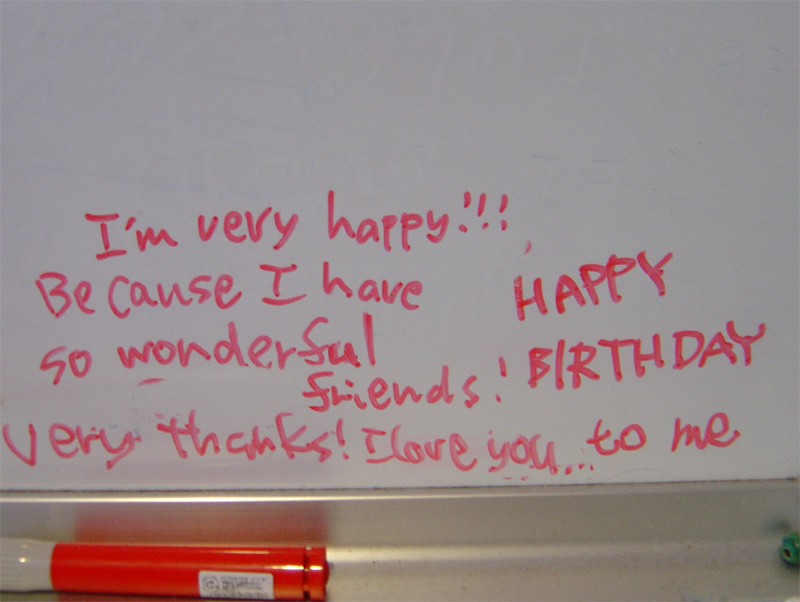 I'm very happy!!!
Because I have
so wonderful
friends!
very thanks! I love you...
HAPPY
BIRTHDAY
to me